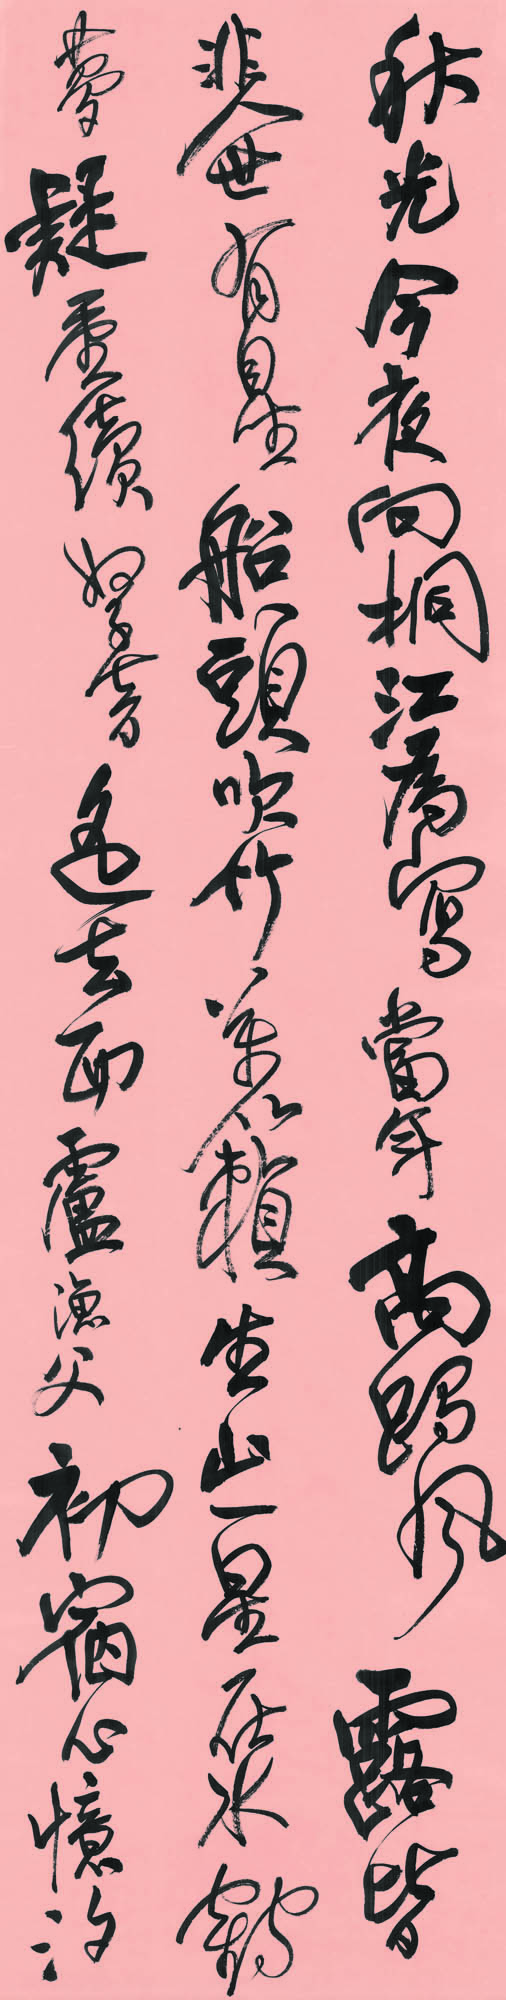 秋光今夜向桐江為寫當年高躅風露皆
非人世有自坐船頭吹竹萬籟生山一星在水鶴
夢疑重續挐音遙去西盧漁父初宿心憶汐